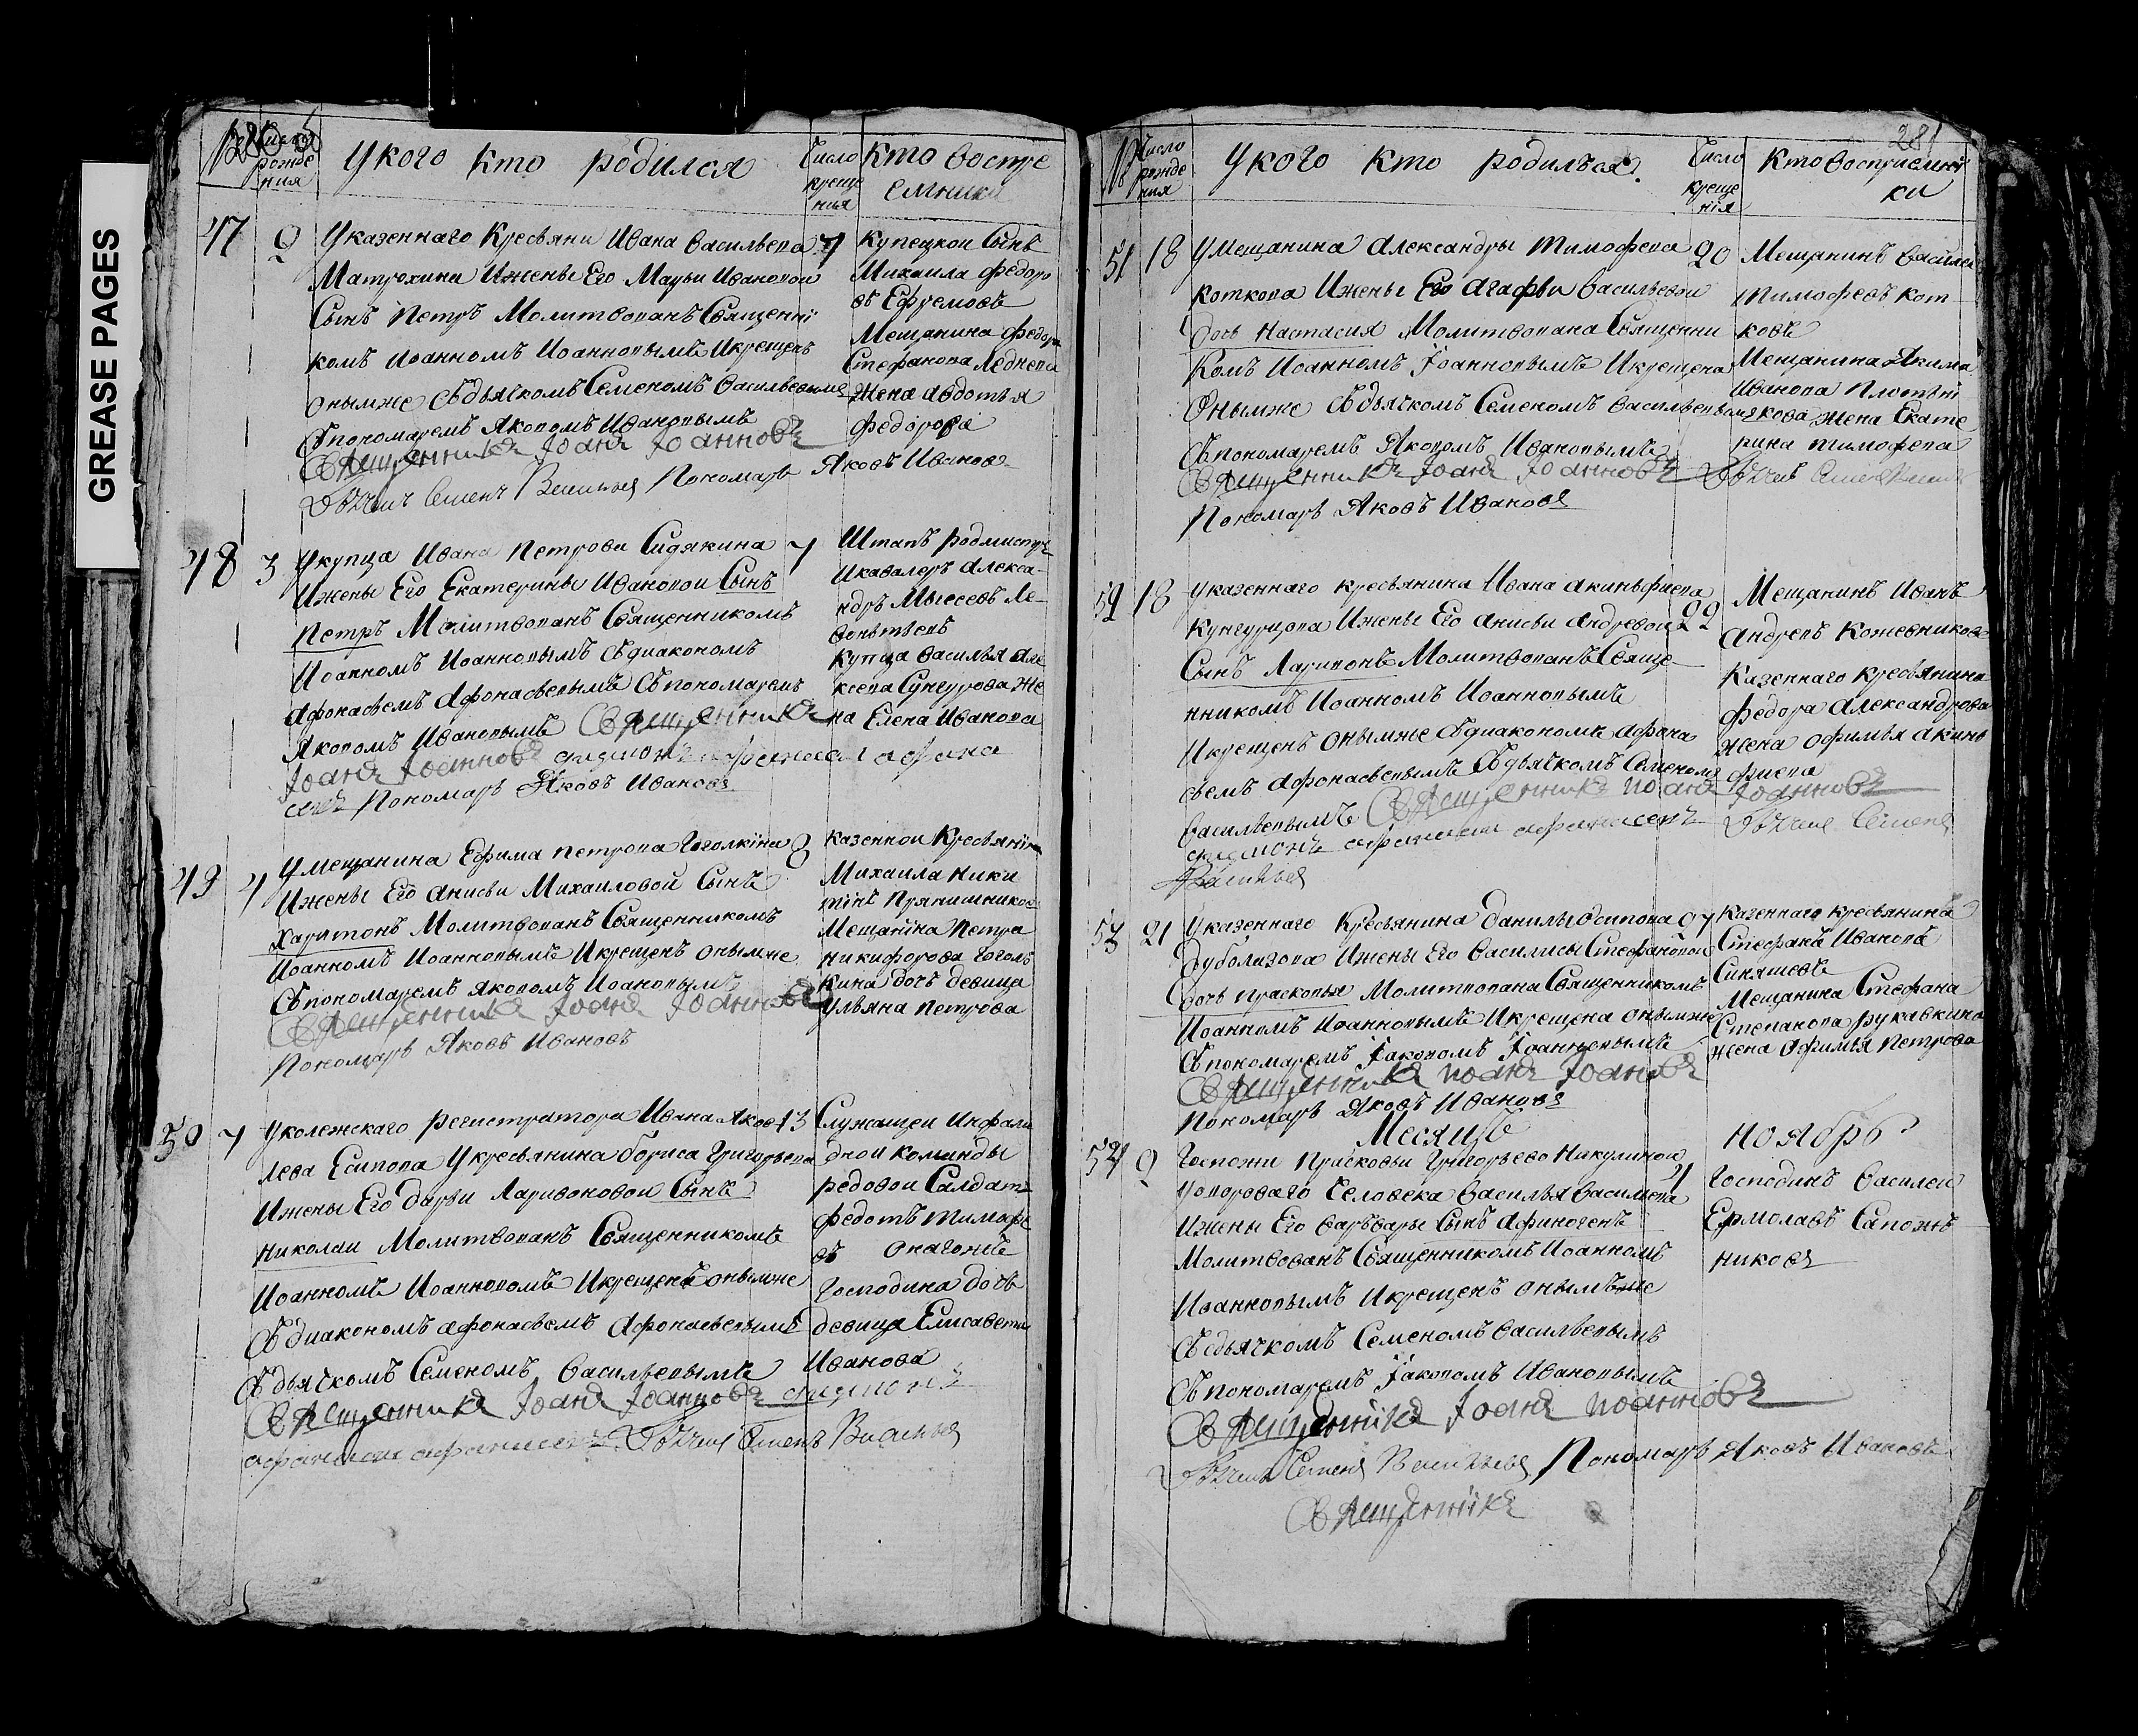 GREASE PAGES
Число рождения
У кого кто родился
Число крещения
Кто востреемники
47 2 У казеннаго Кресьяни Ивана Васильева 7
Матрохина И жены Его Марьи Ивановой
Сынъ Петръ Молитвованъ Священни
комъ Иоанномъ Иоанновымъ И крещенъ
онымже Съ дьячкомъ Семеномъ Васильевымъ
Съ пономаремъ Яковомъ Ивановымъ
Священникъ Иоанъ Иоанновъ
Дьячикъ Семенъ Васильевъ Пономарь Яковъ Ивановъ
Купецкой Сынъ
Михаила Федоро
въ Ефремовъ
Мещанина Федора
Стефанова Леднева
Жена Авдотья
Федорова
48 3 У купца Ивана Петрова Сидякина 7
И жены Его Екатерины Ивановой Сынъ
Петръ Молитвованъ Священникомъ
Иоанномъ Иоанновымъ Съ диакономъ
Афонасьемъ Афонасьевымъ Съ пономаремъ
Яковомъ Ивановымъ Священникъ
Иоанъ Иоанновъ диаконъ
Пономарь Яковъ Ивановъ
Штапъ Родмистръ
И кавалеръ Алекса-
ндръ
Купца Василья Але
ксева Сунгурова Же
на Елена Иванова
49 4 У мещанина Ефима Петрова Гоголкина 8
И жены Его Анисьи Михаиловой Сынъ
Харитонъ Молитвованъ Священникомъ
Иоанномъ Иоанновымъ И крещенъ онымже
Съ пономаремъ Яковомъ Иоановымъ
Священникъ Иоанъ Иоанновъ
Пономарь Яковъ Ивановъ
Казенной Кресьянинъ
Михаила Ники
тинъ Прянишников
Мещанина Петра
Никифорова Гоголь
кина дочь девица
Ульяна Петрова
50 7 У колежскаго регистратора Ивана Яков 13
лева Есипова У кресьянина Бориса Григорьева
И жены Его Дарьи Ларивоновой Сынъ
Николаи Молитвованъ Священникомъ
Иоанномъ Иоанновомъ И крещенъ онымже
Съ диакономъ Афонасьемъ Афонасьевымъ
Съ дьячкомъ Семеномъ Васильевымъ
Священникъ Иоанъ Иоанновъ диаконъ
Дьячикъ Семенъ Васильевъ
Служащеи Инфали
дной команды
редовой Салдатъ
Федотъ Тимофе
въ
Господина дочь
девица Елисавета
Иванова
281
Число рождения
У кого кто родился
Число крещения
Кто восприемни
ки
51 18 У Мещанина Александры Тимофева 20
Коткова И жены Его Агафьи Васильевой
дочь Настасия Молитвована Священни
комъ Иоанномъ Иоанновымъ И крещена
Онымже Съ дьячкомъ Семеномъ Васильевымъ
Съ пономаремъ Яковомъ Ивановымъ
Священникъ Иоанъ Иоанновъ Дьячикъ
Пономарь Яковъ Ивановъ
Мещанинъ Василеи
Тимофевъ Кот
ковъ
Мещанина Якима
Иванова Плотни
кова жена Екате
рина Тимофева
52 18 У казеннаго кресьянина Ивана Акиньфиева 22
Кунгурцова И жены Его Анисьи Андревой
Сынъ Ларивонъ Молитвованъ Свяще
нникомъ Иоанномъ Иоанновымъ
И крещенъ онымже Съ диакономъ Афона
сьемъ Афонасьевымъ Съ дьячкомъ Семеномъ
Васильевымъ Священникъ Иоанъ Иоанновъ
диаконъ Дьячикъ Семенъ
Васильевъ
Мещанинъ Иванъ
Андревъ Кожевников
Казеннаго кресьянина
Федора Александрова
жена Офимья Акинь
фиева
53 21 У казеннаго Кресьянина Данилы Осипова 27
Дуболазова И жены Его Василисы Стефановой
дочь Прасковья Молитвована Священникомъ
Иоанномъ Иоанновымъ И крещена онымже
Съ пономаремъ Иаковомъ Иоанновымъ
Священникъ Иоанъ Иоановъ
Пономарь Яковъ Ивановъ
Казеннаго кресьянина
Стефанъ Иванова
Синяшевъ
Мещанина Стефана
Степанова Рукавкина
жена Офимья Петрова
Месяцъ Ноябрь
54 2 Госпожи Прасковьи Григорьево Никулиной 4
у дороваго Человека Василья Васильева
И жены Его Варъвары Сынъ Афиногенъ
Молитвованъ Священникомъ Иоанномъ
Иоанновымъ И крещенъ онымъже
Съ дьячкомъ Семеномъ Васильевымъ
Съ пономаремъ Иаковомъ Ивановымъ
Священникъ Иоанъ Иоанновъ
Дьячикъ Семенъ Васильевъ Пономарь Яковъ Ивановъ
Священникъ
Господинъ Василеи
Ермолавъ Сапожъ
никовъ